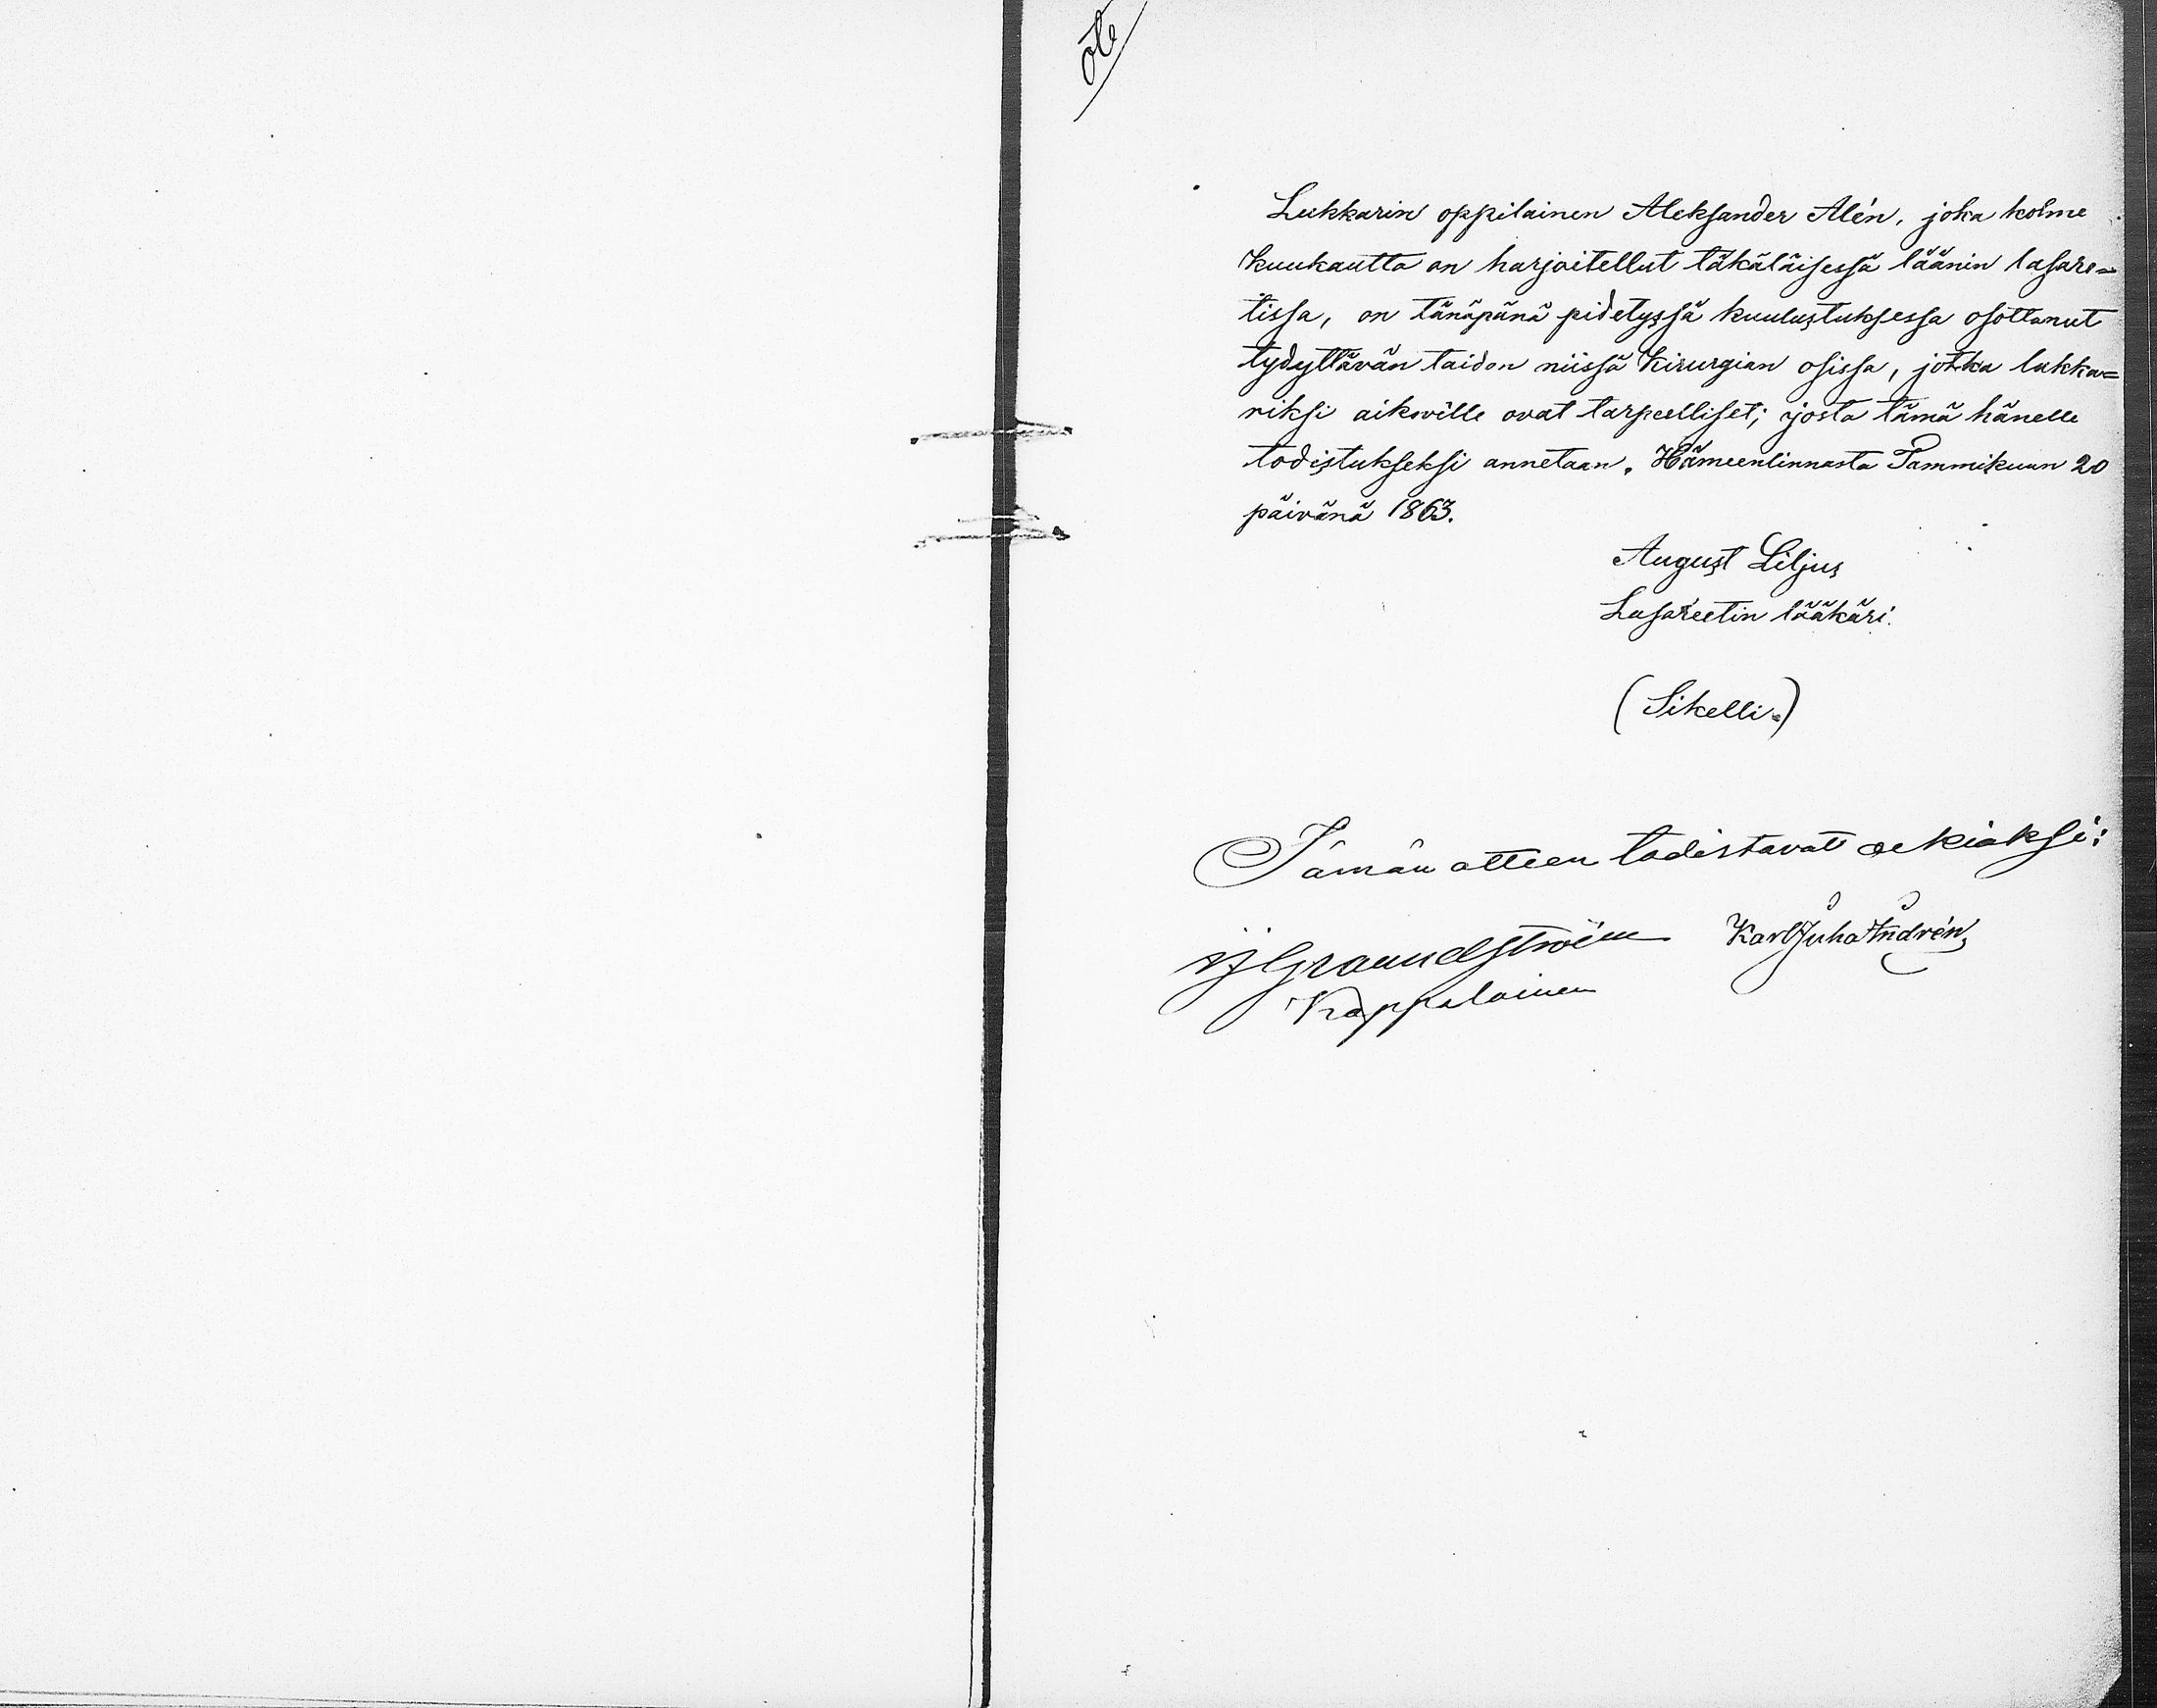 Ote
Lukkarin oppilainen Aleksander Alén, joka kolme
kuukautta on harjoitellut täkäläisessä läänin lasare=
tissa, on tänäpänä pidetyssä kuulustuksessa osottanut
tydyttävän taidon niissä Kirurgian osissa, jotka lukka=
riksi aikoville ovat tarpeelliset; josta tämä hänelle
todistukseksi annetaan. Hämeenlinnasta Tammikuun 20
päivänä 1863.
August Liljus
Lasareetin lääkäri.
(Sikelli.)
Tämän otteen todistavat oekiaksi:
Grandström Karl Juha Andrén,
Kappalainen